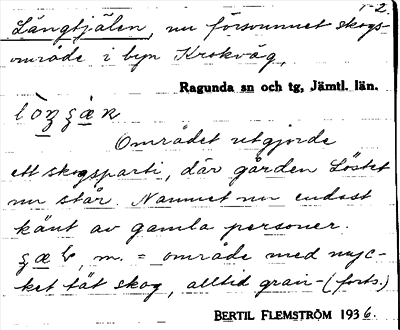 1-2.
Långtjälen, nu försvunnet skogs-
område i byn Krokvåg,
Ragunda sn och tg, Jämtl. län.
Området utgjorde
ett skogsparti, där gården Löstet
nu står. Namnet nu endast
känt av gamla personer.
m. = område med myc-
ket tät skog, alltid gran- (forts.)
BERTIL FLEMSTRÖM 1936.